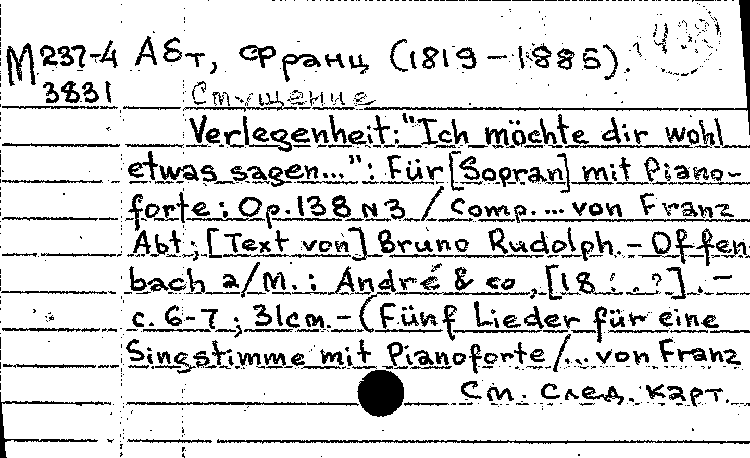 М 237-4 Абт, Франц (1819-1885). 432
3831 Смущение
Verlegenheit: "Ich möchte dir wohl
etwas sagen...": Für [Sopran] mit Piano-
forte: Op. 138 N 3 / Comp. ... von Franz
Abt; [Text von] Bruno Rudolph. - Offen
bach a/M.: André & co, [18..?]. -
c. 6-7; 31cm. - (Fünf Lieder für eine
Singstimme mit Pianoforte /... von Franz
См. след. карт.